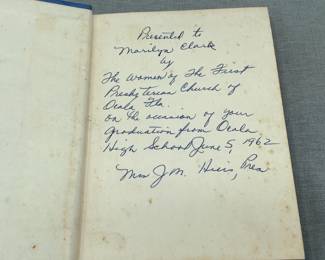 Presented to
Marilyn Clark
by
The Women of The First
Presbyterian Church of
Ocala, Fla.
on the occasion of your
graduation from Ocala
High School June 5, 1962
Mrs J. M. Hiers, Pres